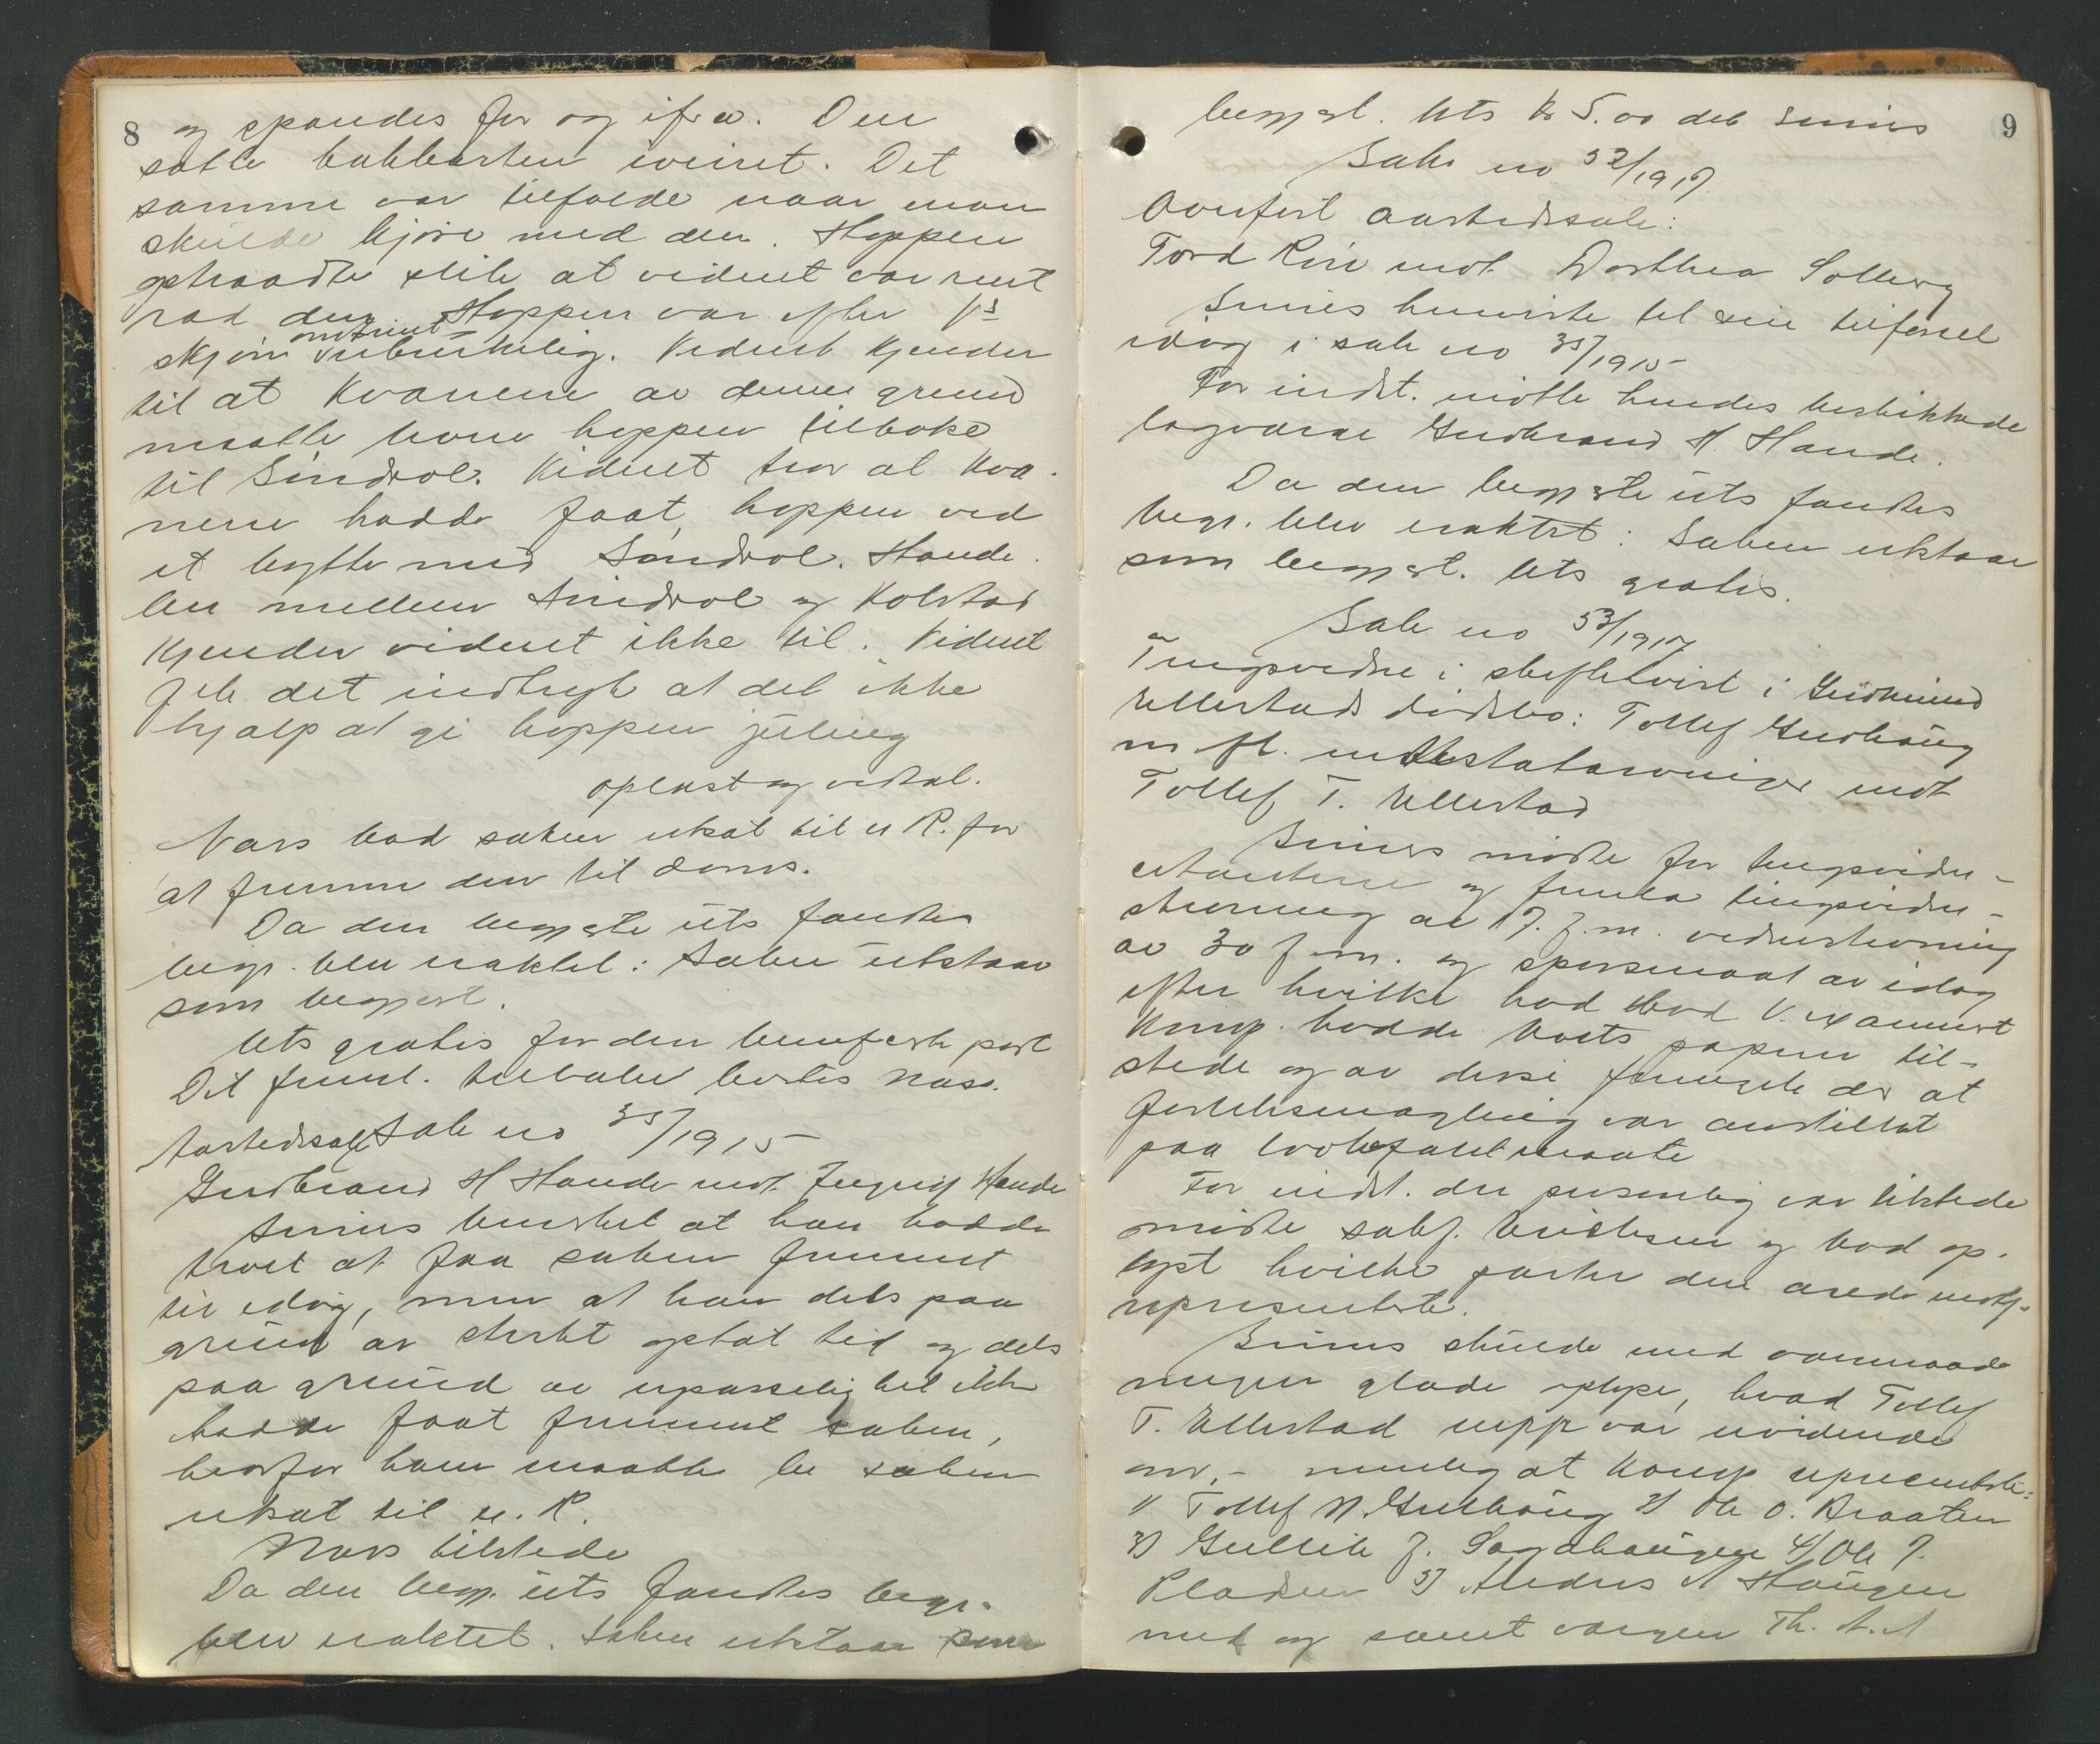 8
og spændes for og ifra. Den
satte bakbasten iveiret. Det
samme var tilfælde naar man
skulde kjøre med den. Hoppen
optraadte slik at vidnet var ræd
den. Hoppen var efter vs
skjøn omtrent ubrukelig. Vidnet kjender
til at Kvannene av denne grund
maatte levere hoppen tilbake
til Sindrol. Vidnet tror at Kva-
nene hadde faat hoppen ved
et bytte med Sindrol. Hande-
len mellem Sindrol og Kolstad
kjender vidnet ikke til. Vidnet
fik det indtryk at det ikke
hjalp at gi hoppen juling
oplæst og vedtat.
Næss bad saken utsat til n. R. for
at fremme den til doms.
Da den begjærte uts fandtes
begr. blev eraktet: Saken utstaar
som begjært.
Uts gratis for den benef. part
Det freml. tilbakeleveres Næss.
Aastedssak Sak no 35/1915
Gudbrand H Hande mot Ingrid Hande
Smiis bemerket at han hadde
troet at faa saken fremmet
til idag, men at han dels paa
grund av sterkt optat tid og dels
paa grund av upasselighet ikke
hadde faat fremmet saken,
hvorfor han maatte be saken
utsat til n. R.
Næss tilstede
Da den begj. uts fandtes begr.
blev eraktet. Saken utstaar som
9
begjært. Uts kr 5.00 deb Smiis
Sak no 52/1917.
Benefisert aastedssak:
Tord Røn mot Dorthea Solberg
Smiis henviste til sin tilførsel
idag i sak no 35/1915
For indst. møtte hendes beskikkede
lagværge Gudbrand H. Hande.
Da den begjærte uts fandtes
begr. blev eraktet: Saken utstaar
som begjært. Uts gratis.
Sak no 53/1917
Tingsvidne i skiftetvist i Gudmund
Ullestads dødsbo: Tollef Gudhaug
m fl. intestatarvinger mot
Tollef T. Ullestad
Smiis møtte for tingsvidne-
citantene og freml. tingsvidne-
stevning av 17. f.m. vidnestevning
av 30 f.m. og spørsmaal av idag
efter hvilke han bad v. examinert
Komp. hadde boets papirer til-
stede og av disse fremgik det at
forliksmægling var anstillet
paa lovbefalet maate
For indst. der personlig var tilstede
møtte sakf. Erichsen og bad op-
lyst hvilke parter den ærede motp.
representerte.
Smiis skulde med
megen glæde oplyse, hvad Tollef
T. Ullestad neppe var uvidende
om, - nemlig at Komp representerte:
1) Tollef N. Gudhaug 2) Ole O. Braaten
3) Gullik J. Sandhaugen 4) Ole J.
Pladsen 5) Andris A Haugen
med og samt værgen Th. A. A